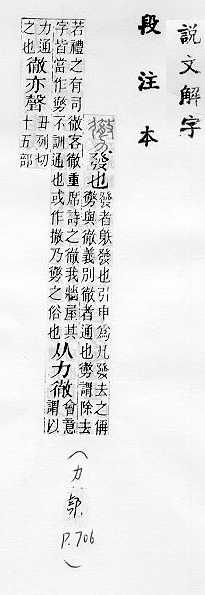 說文解字
段注本
勶
發也
發者躲發也引申爲凡發去之偁
勶與徹義別徹者通也勶謂除去
若禮之有司徹客徹重席詩之徹我牆屋其
字皆當作勶不訓通也或作撤乃勶之俗也
从力徹
會意
謂以
力通
之也
徹亦聲
丑列切
十五部
(力部 P.706)